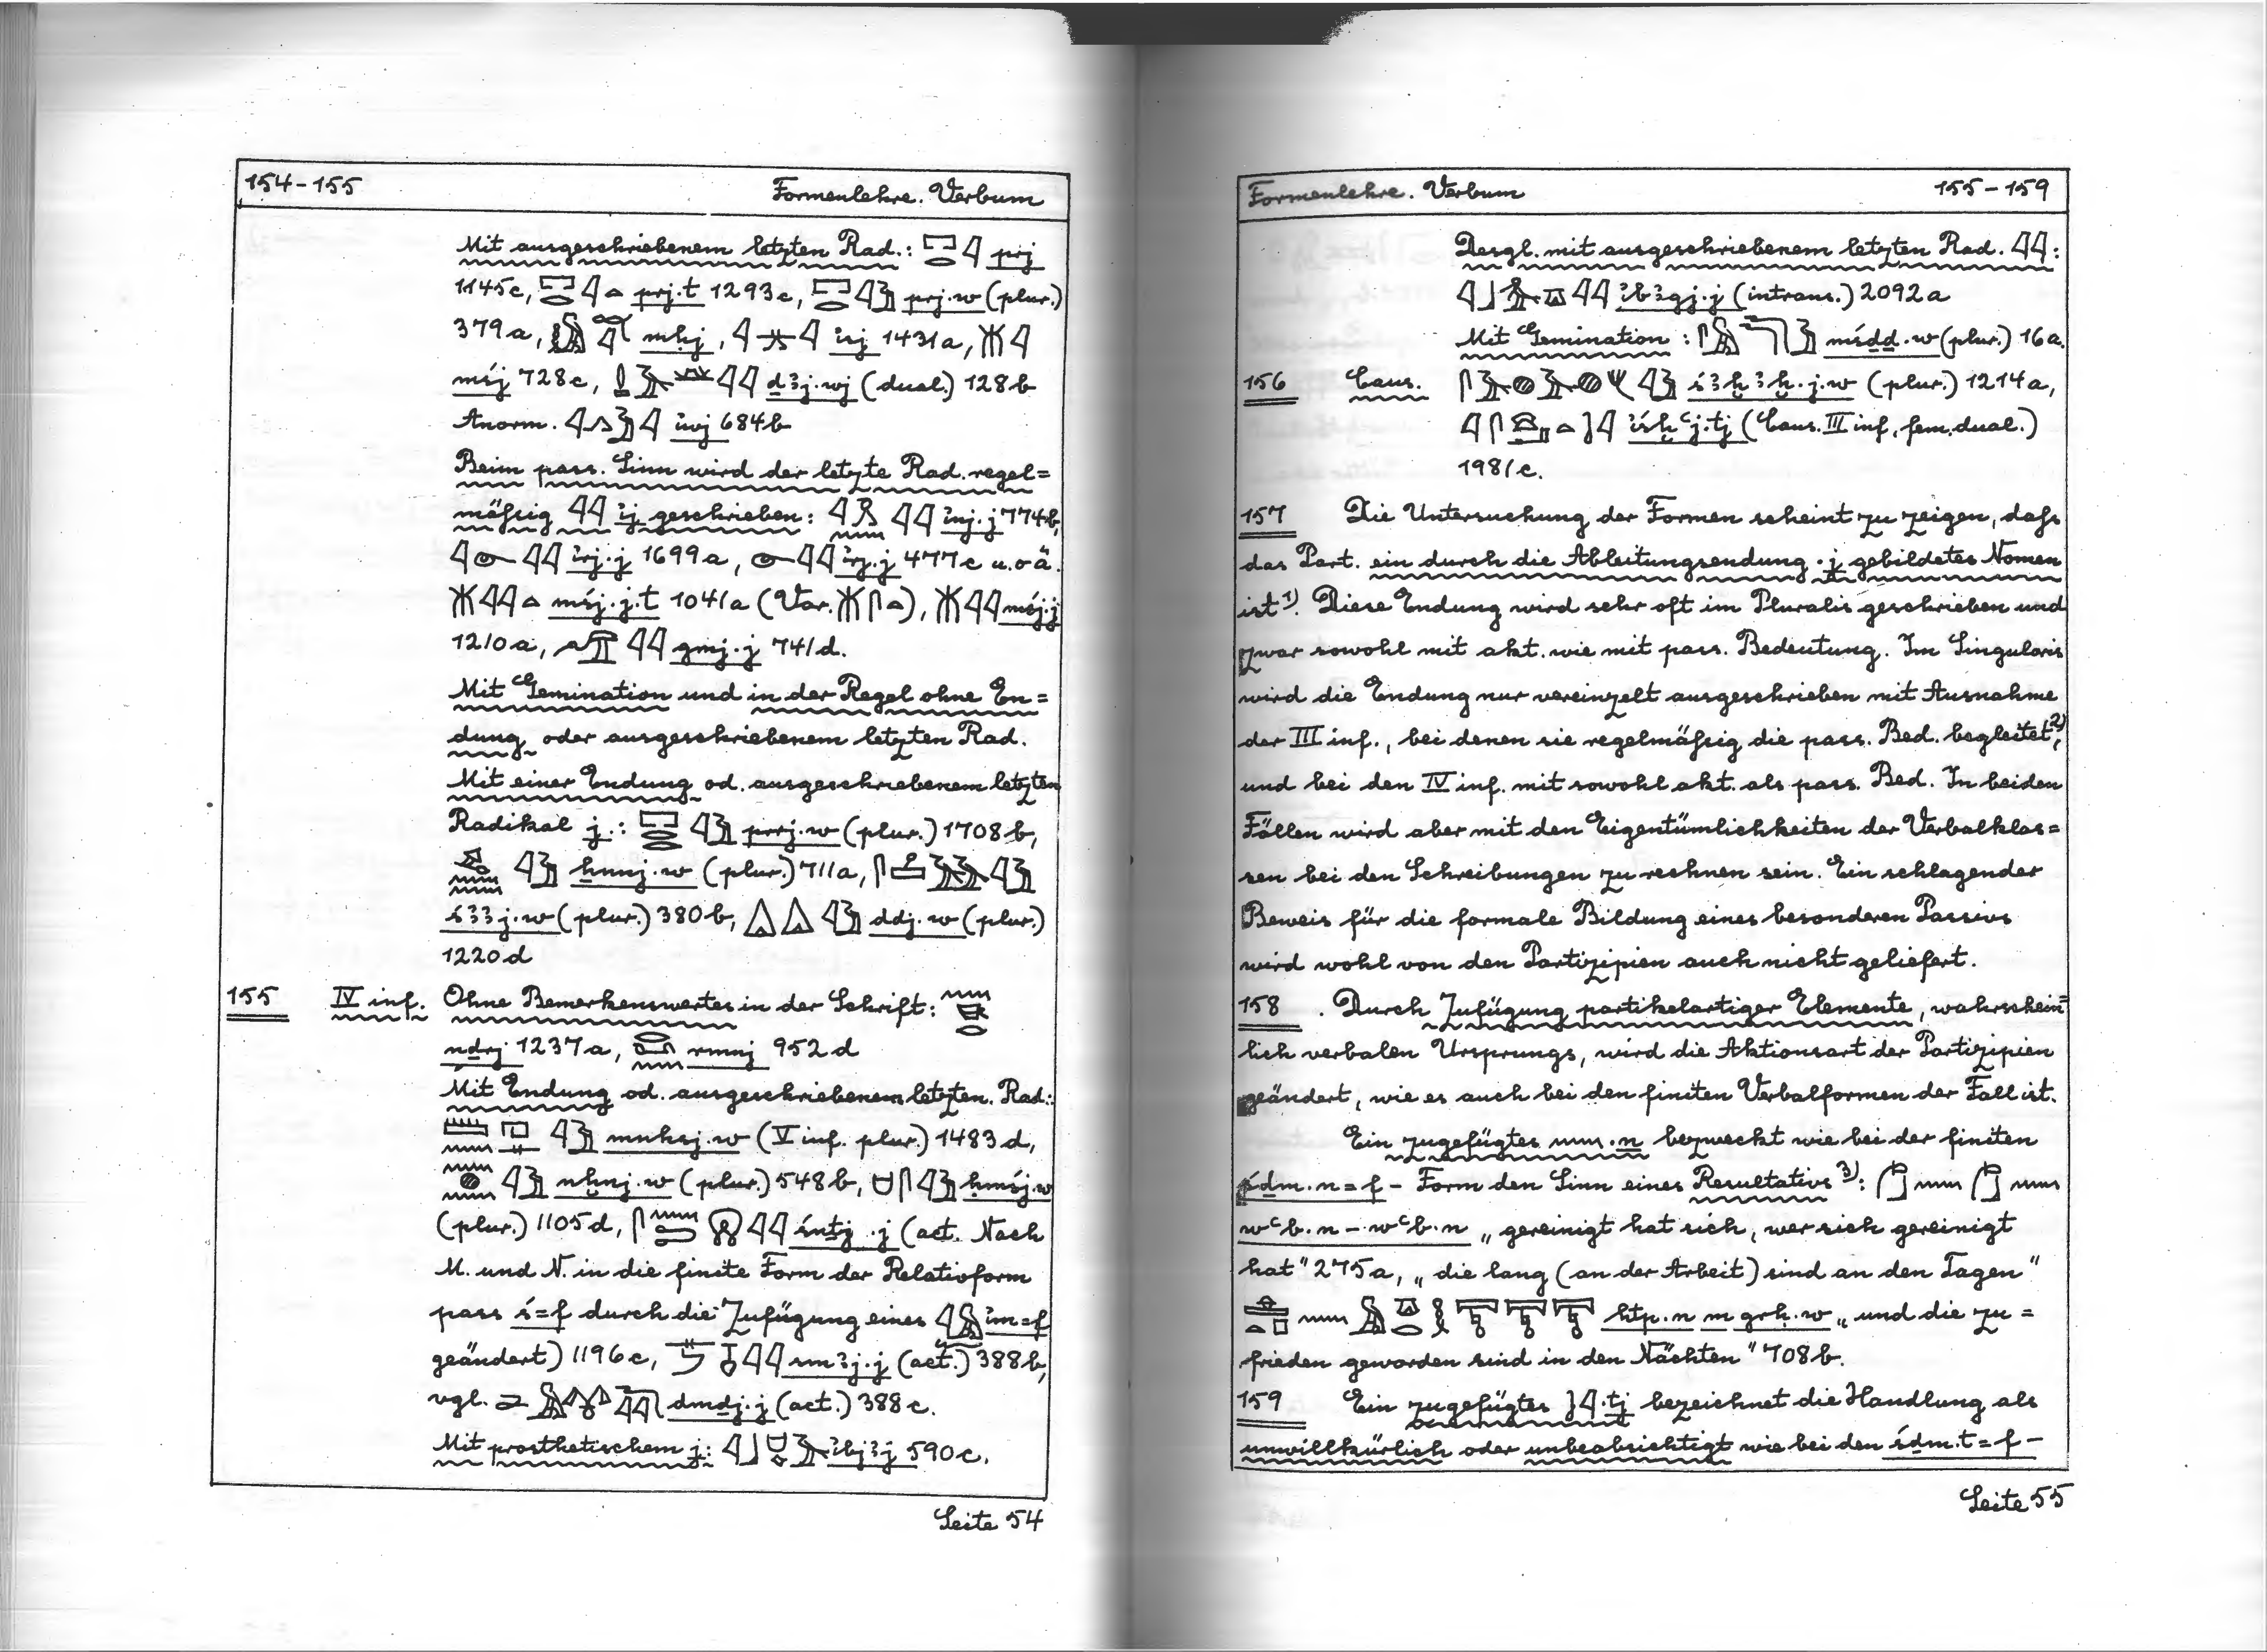 154-155 Formenlehre. Verbum
Mit ausgeschriebenem letzten Rad.: 𓉐𓂋𓇋 prj
1145c, 𓉐𓂋𓇋𓏏 prj.t 1293c, 𓉐𓂋𓇋𓅱 prj.w (plur.)
379a, mḥj, 𓇋𓇋 1431a, 𓄟𓇋
mśj 728c, ḏꜣj.wj (dual.) 128b
Anorm. 𓇋𓂻𓅱𓇋 iwj 684b
Beim pass. Sinn wird der letzte Rad. regel=
mäßig 𓇋𓇋 ij geschrieben: 𓇋𓇋 inj.j 774b,
𓇋𓁹𓇋𓇋 irj.j 1699a, 𓁹𓇋𓇋 irj.j 477c u.o ä.
𓄟𓇋𓇋𓏏 mśj.j.t 1041a (Var. 𓄟𓋴𓏏), 𓄟𓇋𓇋 mśj.j
1210a, 𓅠𓇋𓇋 gmj.j 741d.
Mit Gemination und in der Regel ohne En=
dung oder ausgeschriebenem letzten Rad.
Mit einer Endung od. ausgeschriebenem letzten
Radikal j.: 𓉐𓂋𓂋𓇋𓅱 prrj.w (plur.) 1708b,
𓇋𓅱 ẖnnj.w (plur.) 711a,
śꜣꜣj.w (plur.) 380b, 𓇋𓅱 ddj.w (plur.)
1220d
155 IV inf. Ohne Bemerkenswertes in der Schrift:
nḏrj 1237a, rmnj 952d
Mit Endung od. ausgeschriebenem letzten. Rad.:
𓏠𓈖 𓇋𓅱 mnhsj.w (V inf. plur.) 1483d,
𓈖𓐍𓈖𓇋𓅱 nḫnj.w (plur.) 548b, 𓇋𓅱 ḥmśj.w
(plur.) 1105d, 𓋴𓈖𓍿𓇋𓇋 śnṯj.j (act. Nach
M. und N. in die finite Form der Relativform
pass ś=f durch die Zufügung eines 𓇋𓅓 im=f
geändert) 1196c, 𓇋𓇋 smꜣj.j (act.) 388b,
vgl. dmḏj.j (act.) 388c.
Mit prosthetischem j: 𓇋𓃀 ibjꜣj 590c.
Seite 54
Formenlehre. Verbum 155-159
Desgl. mit ausgeschriebenem letzten Rad. 𓇋𓇋:
𓇋𓃀𓎼𓇋𓇋 ibꜣgj.j (intrans.) 2092a
Mit Gemination: mśḏḏ.w (plur.) 16a.
156 Caus. śꜣḫꜣḫ.j.w (plur.) 1214a,
iśḫꜥj.tj (Caus. III inf. fem. dual.)
1981c.
157 Die Untersuchung der Formen scheint zu zeigen, daß
das Part. ein durch die Ableitungsendung .j gebildetes Nomen
ist¹⁾. Diese Endung wird sehr oft im Pluralis geschrieben und
zwar sowohl mit akt. wie mit pass. Bedeutung. Im Singularis
wird die Endung nur vereinzelt ausgeschrieben mit Ausnahme
der III inf., bei denen sie regelmäßig die pass. Bed. begleitet²⁾,
und bei den IV inf. mit sowohl akt. als pass. Bed. In beiden
Fällen wird aber mit den Eigentümlichkeiten der Verbalklas=
sen bei den Schreibungen zu rechnen sein. Ein schlagender
Beweis für die formale Bildung eines besonderen Passivs
wird wohl von den Partizipien auch nicht geliefert.
158 . Durch Zufügung partikelartiger Elemente, wahrschein=
lich verbalen Ursprungs, wird die Aktionsart der Partizipien
geändert, wie es auch bei den finiten Verbalformen der Fall ist.
Ein zugefügtes 𓈖 .n bezweckt wie bei der finiten
śḏm.n=f - Form den Sinn eines Resultativs³⁾: 𓈖 𓈖
wꜥb.n - wꜥb.n „gereinigt hat sich, wer sich gereinigt
hat" 275a, „die lang (an der Arbeit) sind an den Tagen"
ḥtp.n m grḥ.w „und die zu=
frieden geworden sind in den Nächten" 708b.
159 Ein zugefügtes 𓇋 .tj bezeichnet die Handlung als
unwillkürlich oder unbeabsichtigt wie bei den śḏm.t=f -
Seite 55